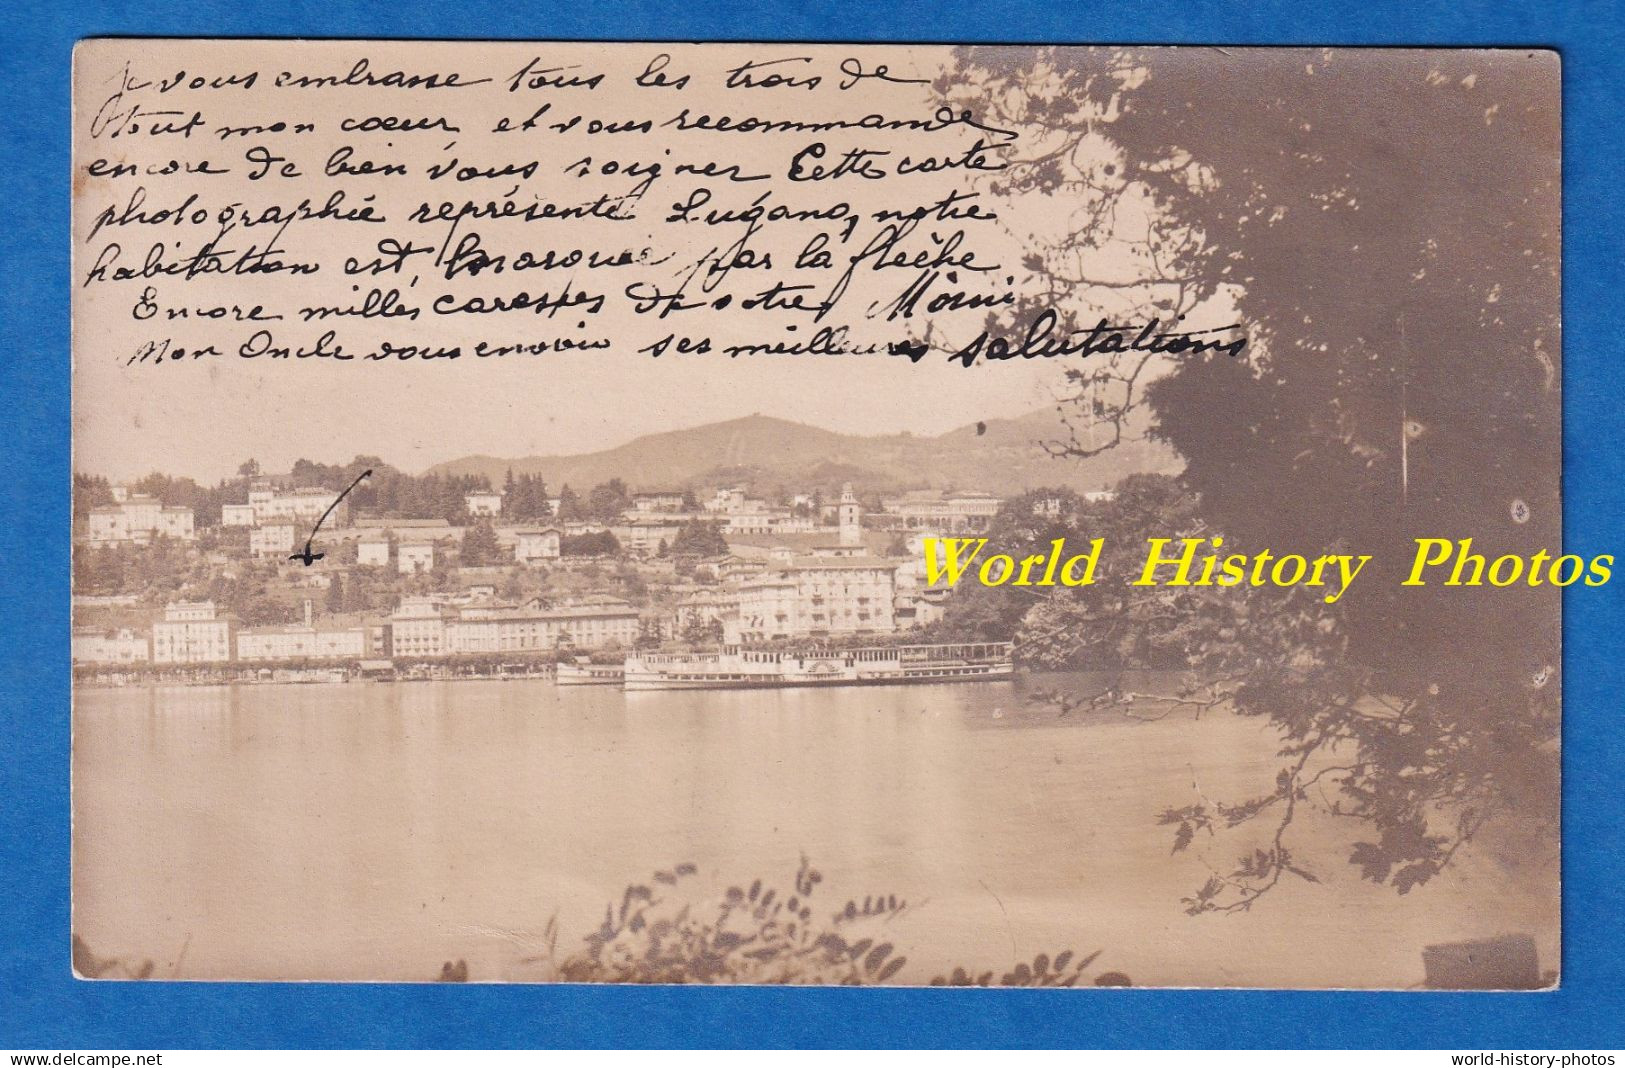 Je vous embrasse tous les trois de
tout mon cœur et vous recommande
encore de bien vous soigner Cette carte
photographie représente Lugano, notre
habitation est marquée par la flèche
Encore milles caresses de votre Mimi
Mon Oncle vous envoie ses meilleures salutations
World History Photos
www.delcampe.net
world-history-photos